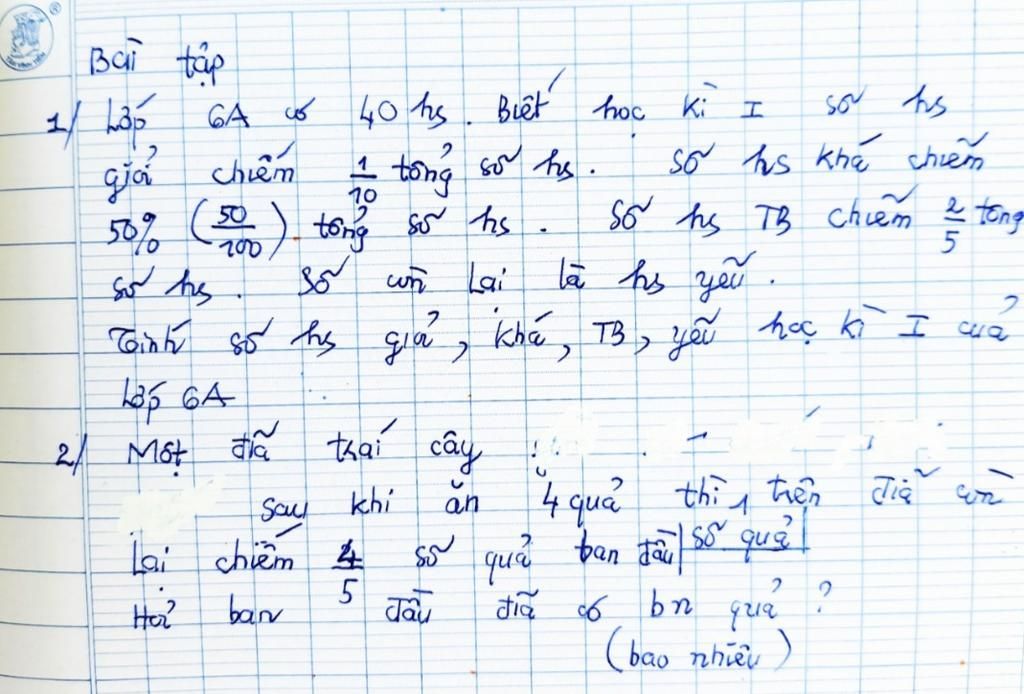 Bài tập
1/ Lớp 6A có 40 hs. Biết học kì I số hs
giỏi chiếm 1/10 tổng số hs. Số hs khá chiếm
50% (50/100) tổng số hs. Số hs TB chiếm 2/5 tổng
số hs. Số còn lại là hs yếu.
Tính số hs giỏi, khá, TB, yếu học kì I của
Lớp 6A
2/ Một đĩa trái cây
sau khi ăn 4 quả thì, trên đĩa còn
Lại chiếm 4/5 số quả ban đầu số quả
Hỏi ban đầu đĩa có bn quả?
(bao nhiêu)